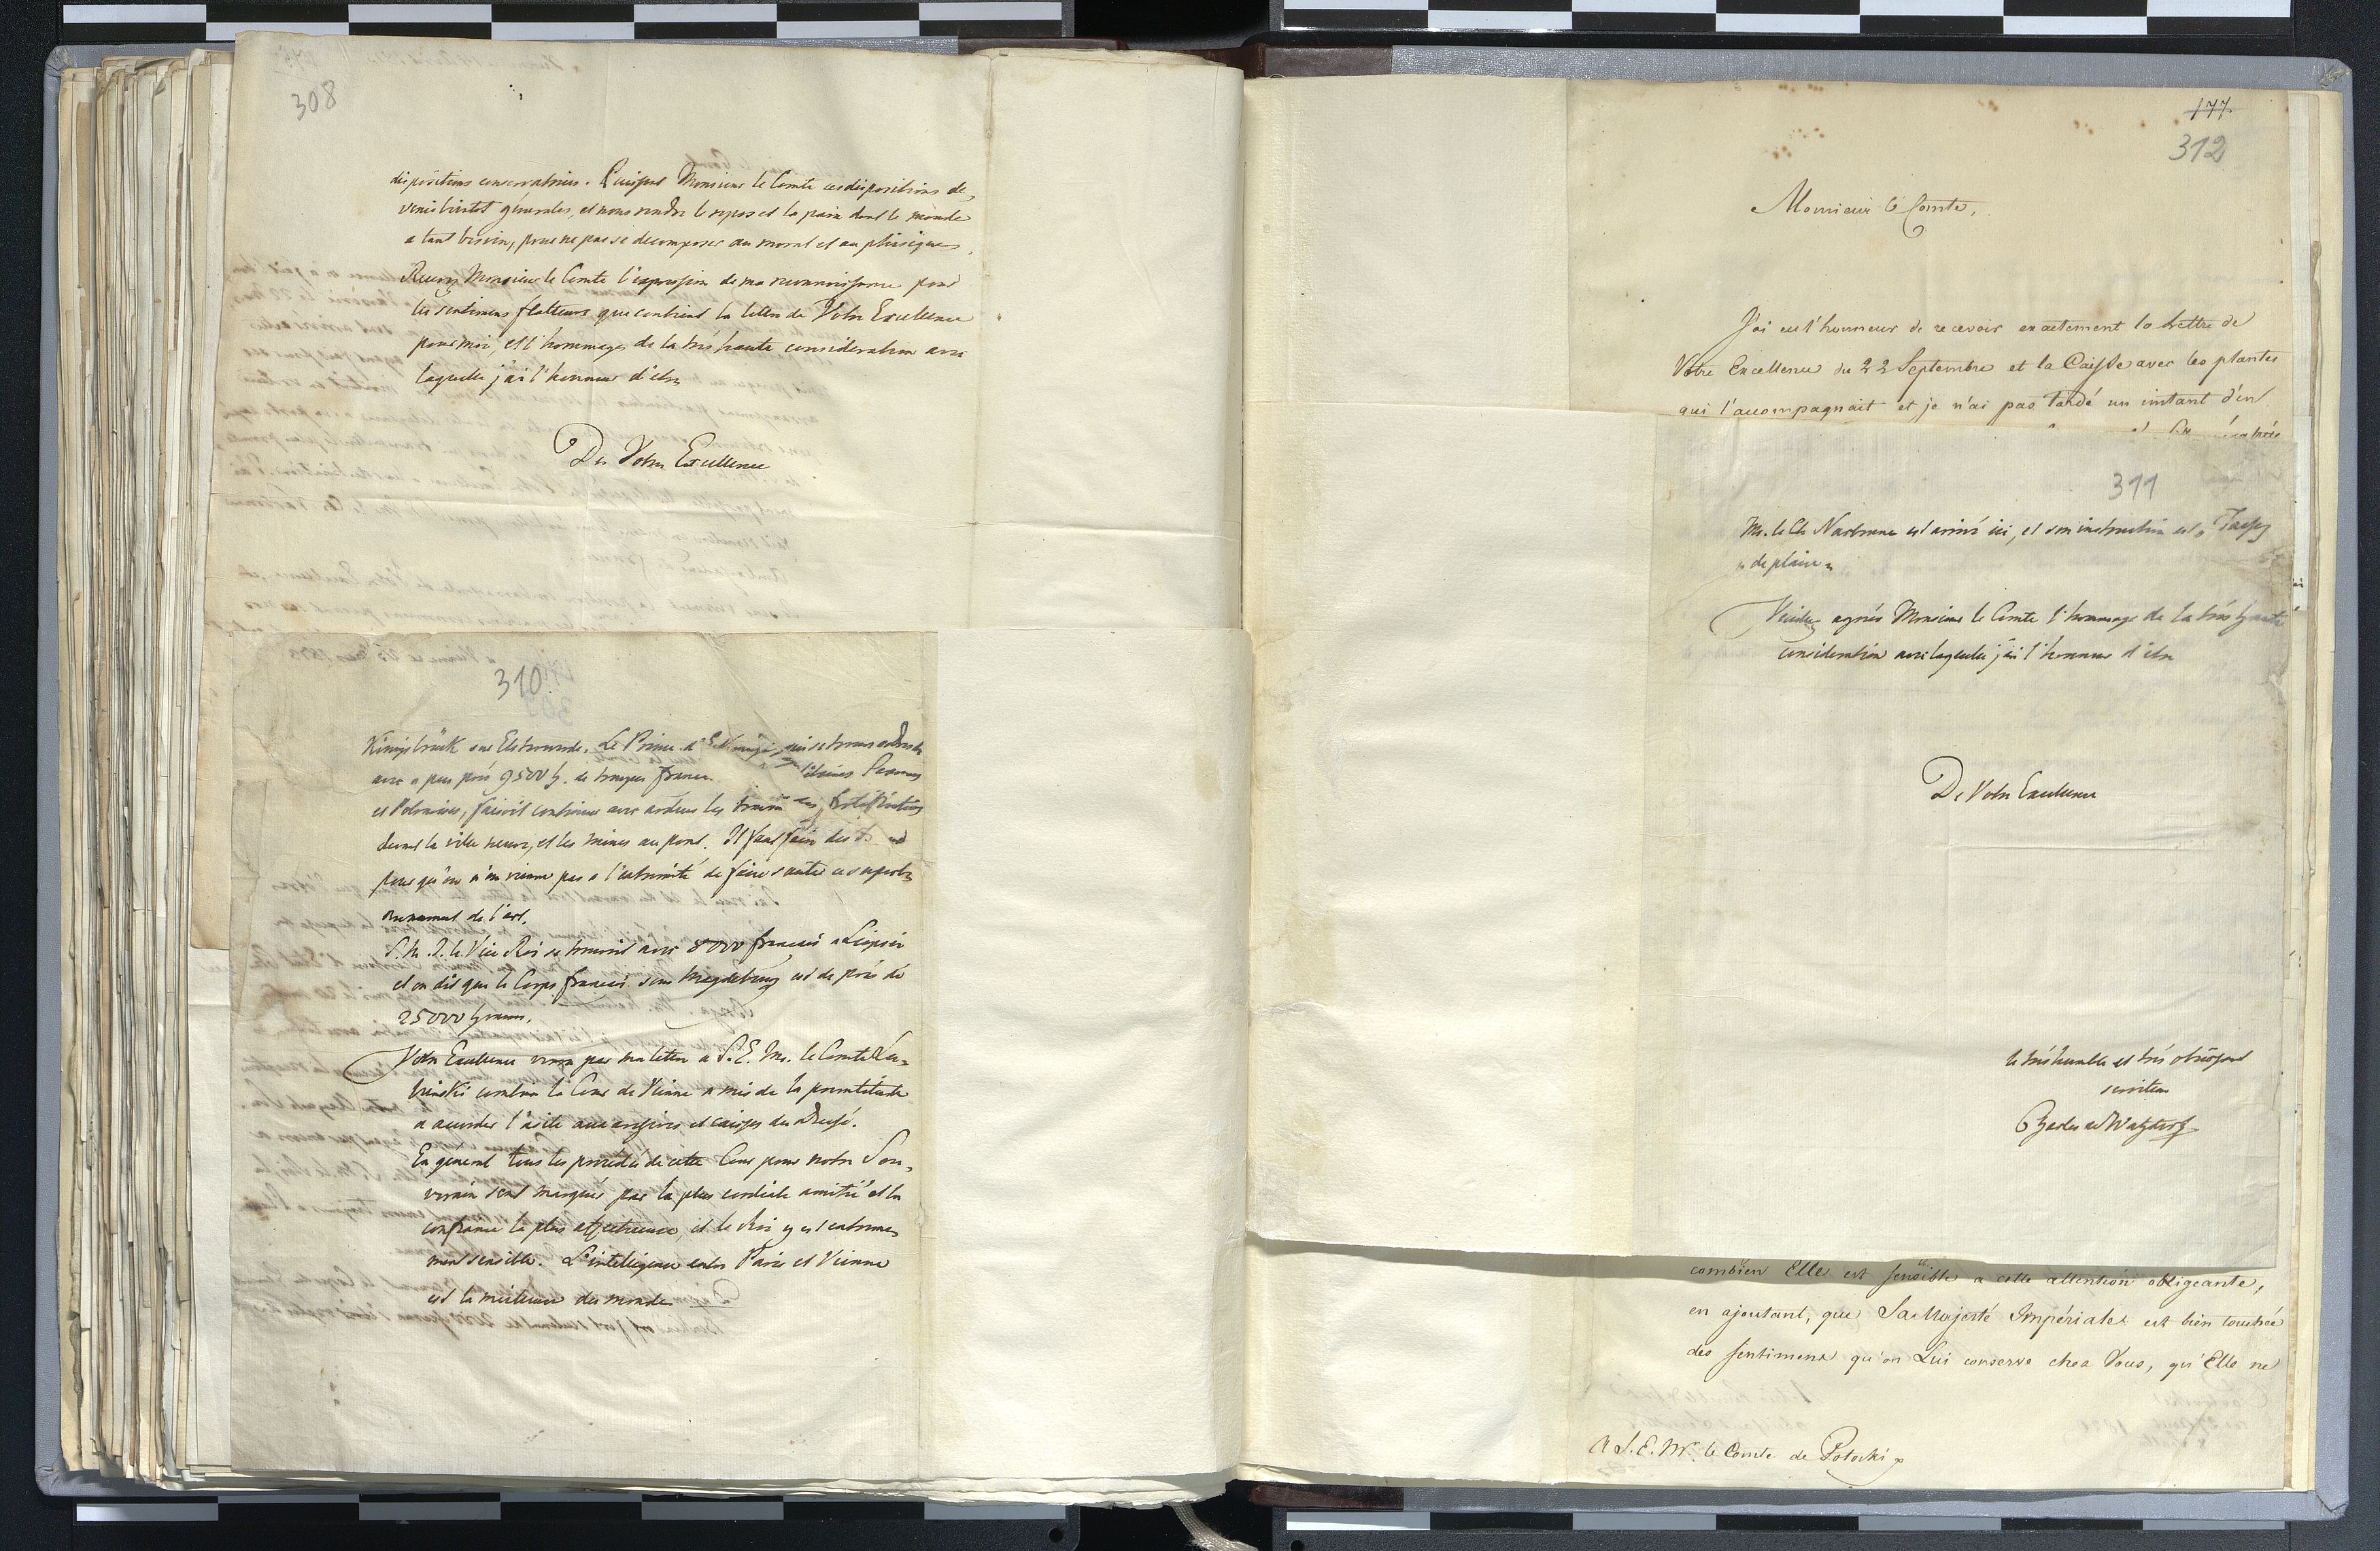 308
dispositions conservatrices. Puissent Monsieur le Comte ces dispositions de„
venir bientot génerales, et nous rendre le repos et la paix dont le monde
a tant besoin, pour ne pas se decomposer au moral et au phisique.
Recevez Monsieur le Comte l'expression de ma reconnoissance pour
les sentimens flatteurs que contient la lettre de Votre Excellence
pour moi, et l'hommage de la trés haute consideration avec
laquelle j'ai l'honneur d'etre
De Votre Excellence
310.
Königsbrück sur Elsterwerda. Le Prince d' qui se trouve a
avec a peu prés 9500 h. de troupes
et Polonoises, faisoit continuer avec ardeur les
devant la ville neuve, et les mines au pont. Il faut faire des
pour qu'on n'en vienne pas a l'extremité de faire sauter ce superbe
monument de l'art.
S. A. I. le Vice Roi se trouvoit avec 8000 français a Leipsic
et on dit que le Corps français sous Magdebourg est de prés de
25000 hommes.
Votre Excellence verra par ma lettre a S. E. Mr. le Comte
combien la Cour de Vienne a mis de la promtitude
a accorder l'asile aux archives et caisses du Duché.
En general tous les procedés de cette Cour pour notre Sou„
verain sont marqués par la plus cordiale amitié et la
confiance la plus affectueuse, et le Roi y est extreme„
ment sensible. L'intelligence entre Paris et Vienne
est la meilleure du monde.
177
312
Monsieur le Comte,
J'ai eu l'honneur de recevoir exactement la lettre de
Votre Excellence du 22 Septembre et la Caisse avec les plantes
qui l'accompagnait et je n'ai pas tardé un instant d'en
311
Mr. le Cte Narbonne est arrivé ici, et son instruction est „
„ de plaire „
Veuillez agréer Monsieur le Comte l'hommage de la trés haute
consideration avec laquelle j'ai l'honneur d'etre
De Votre Excellence
le trés humble et trés obeissant
serviteur
Charles de Watzdorf
combien Elle est sensible a cette attention obligeante,
en ajoutant, que Sa Majesté Impériale est bien touchée
des sentimens qu'on Lui conserve chez Vous, qu'Elle ne
A S. E. Mr. le Comte de Potocki